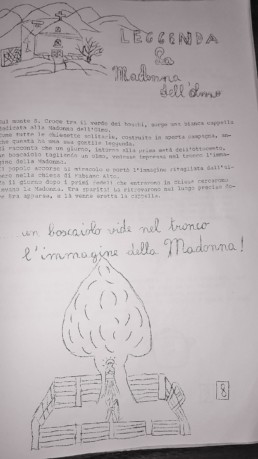 LEGGENDA
La
Madonna
dell'olmo
sul monte S. Croce tra il verde dei boschi, sorge una bianca cappella
dedicata alla Madonna dell'Olmo.
Come tutte le chiesette solitarie, costruite in aperta campagna, an-
che questa ha una sua gentile leggenda.
Si racconta che un giorno, intorno alla prima metà dell'ottocento,
un boscaiolo tagliando un olmo, vedesse impressa nel tronco l'imma-
gine della Madonna.
Il popolo accorse al miracolo e portò l'immagine ritagliata dall'al-
bero nella chiesa di
il giorno dopo i primi fedeli che entrarono in chiesa
la Madonna. Era sparita! La ritrovarono nel luogo preciso do-
ve era apparsa, e là venne eretta la cappella.
un boscaiolo vide nel tronco
l'immagine della Madonna!
8